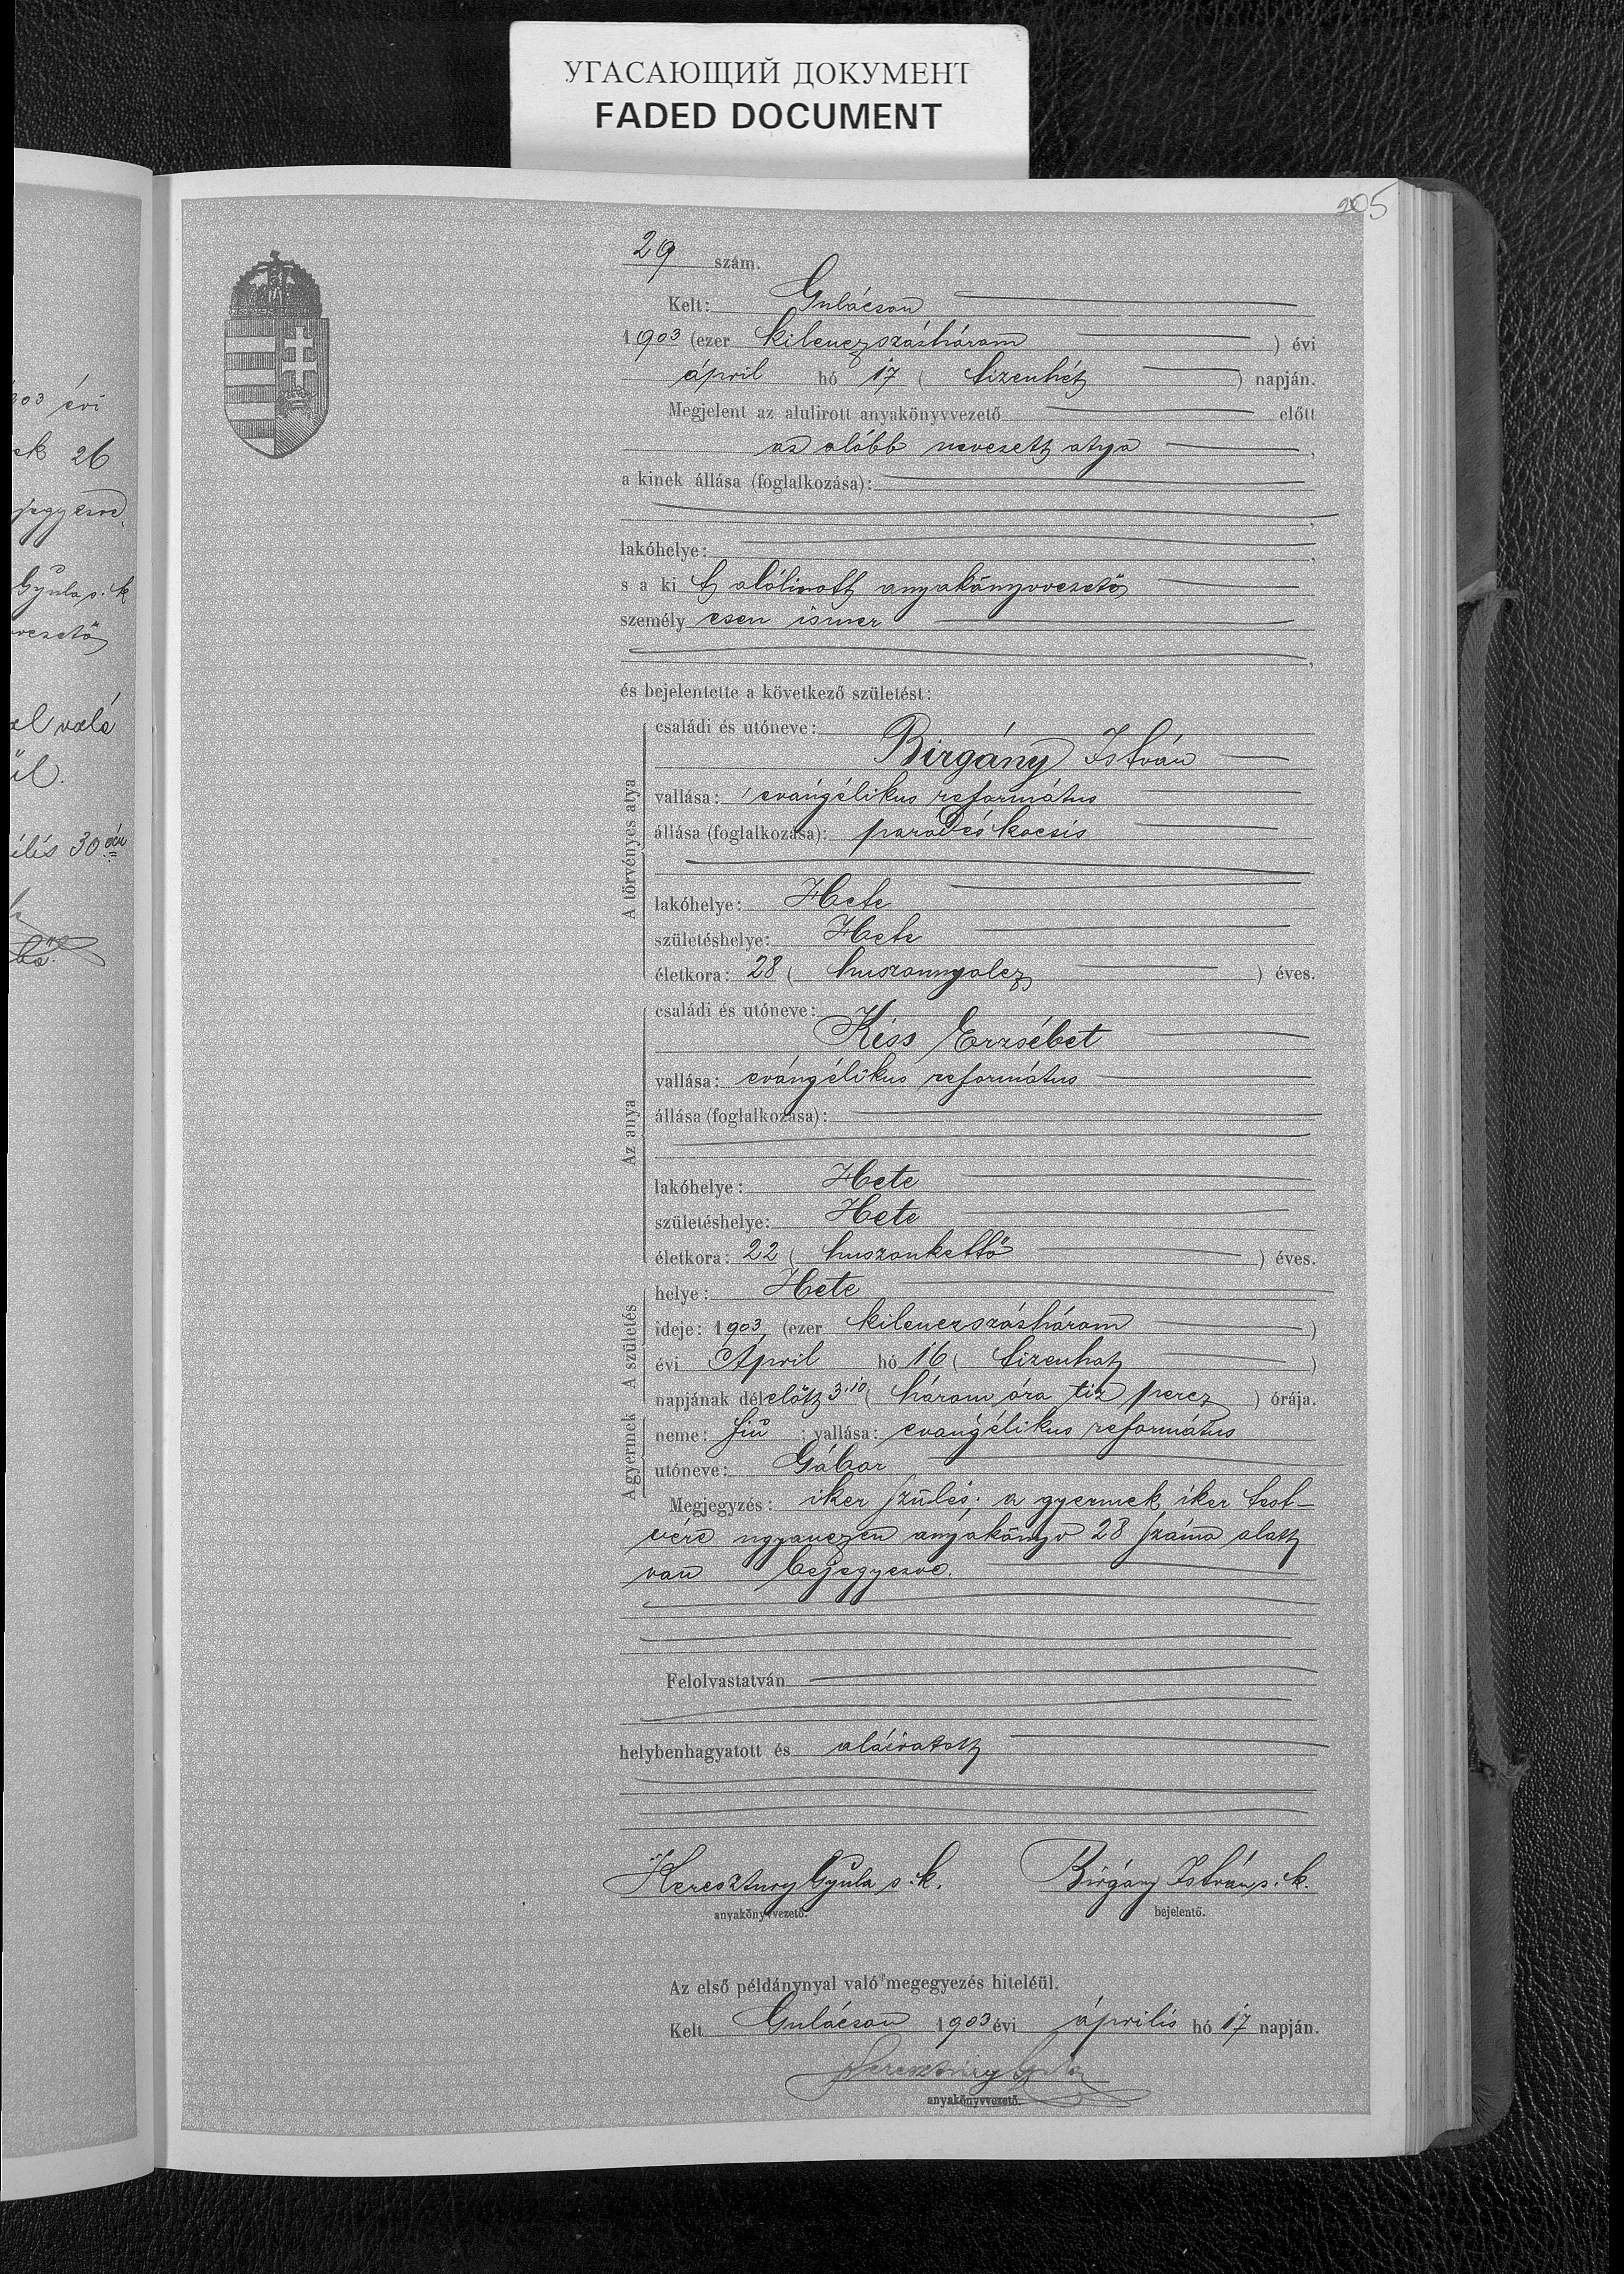 УГАСАЮЩИЙ ДОКУМЕНТ
FADED DOCUMENT
205
29 szám.
Kelt: Gulácson
1903 (ezer kilenczszázhárom ) évi
ápril hó 17 ( tizenhét ) napján.
Megjelent az alulirott anyakönyvvezető előtt
az alább nevezett atya ,
a kinek állása (foglalkozása):
lakóhelye:
s a ki t alólirott anyakönyvvezető
személy esen ismer
és bejelentette a következő születést:
A törvényes atya
családi és utóneve:
Birgány István
vallása: evángélikus református
állása (foglalkozása): parádés kocsis
lakóhelye: Hete
születéshelye: Hete
életkora: 28 ( huszonnyolcz ) éves.
Az anya
családi és utóneve:
Kiss Erzsébet
vallása: evángélikus református
állása (foglalkozása):
lakóhelye: Hete
születéshelye: Hete
életkora: 22 ( huszonkettő ) éves.
A gyermek A születés
helye: Hete
ideje: 1903, (ezer kilenczszázhárom )
évi Ápril hó 16 ( tizenhat )
napjának délelőtt 3.10 ( három óra tiz percz ) órája.
neme: fiú ; vallása: evangélikus református
utóneve: Gábor
Megjegyzés: iker szülés; a gyermek iker test-
vére ugyanezen anyakönyv 28 száma alatt
van bejegyezve.
Felolvastatván
helybenhagyatott és aláiratott
Keresztury Gyula s. k. Birgány István s. k.
anyakönyvvezető. bejelentő.
Az első példánynyal való megegyezés hiteléül.
Kelt Gulácson 1903 évi április hó 17 napján.
Keresztury Gyula
anyakönyvvezető.
903 évi
26
jegyezve
Gyula s. k
vezető
való
ül.
30